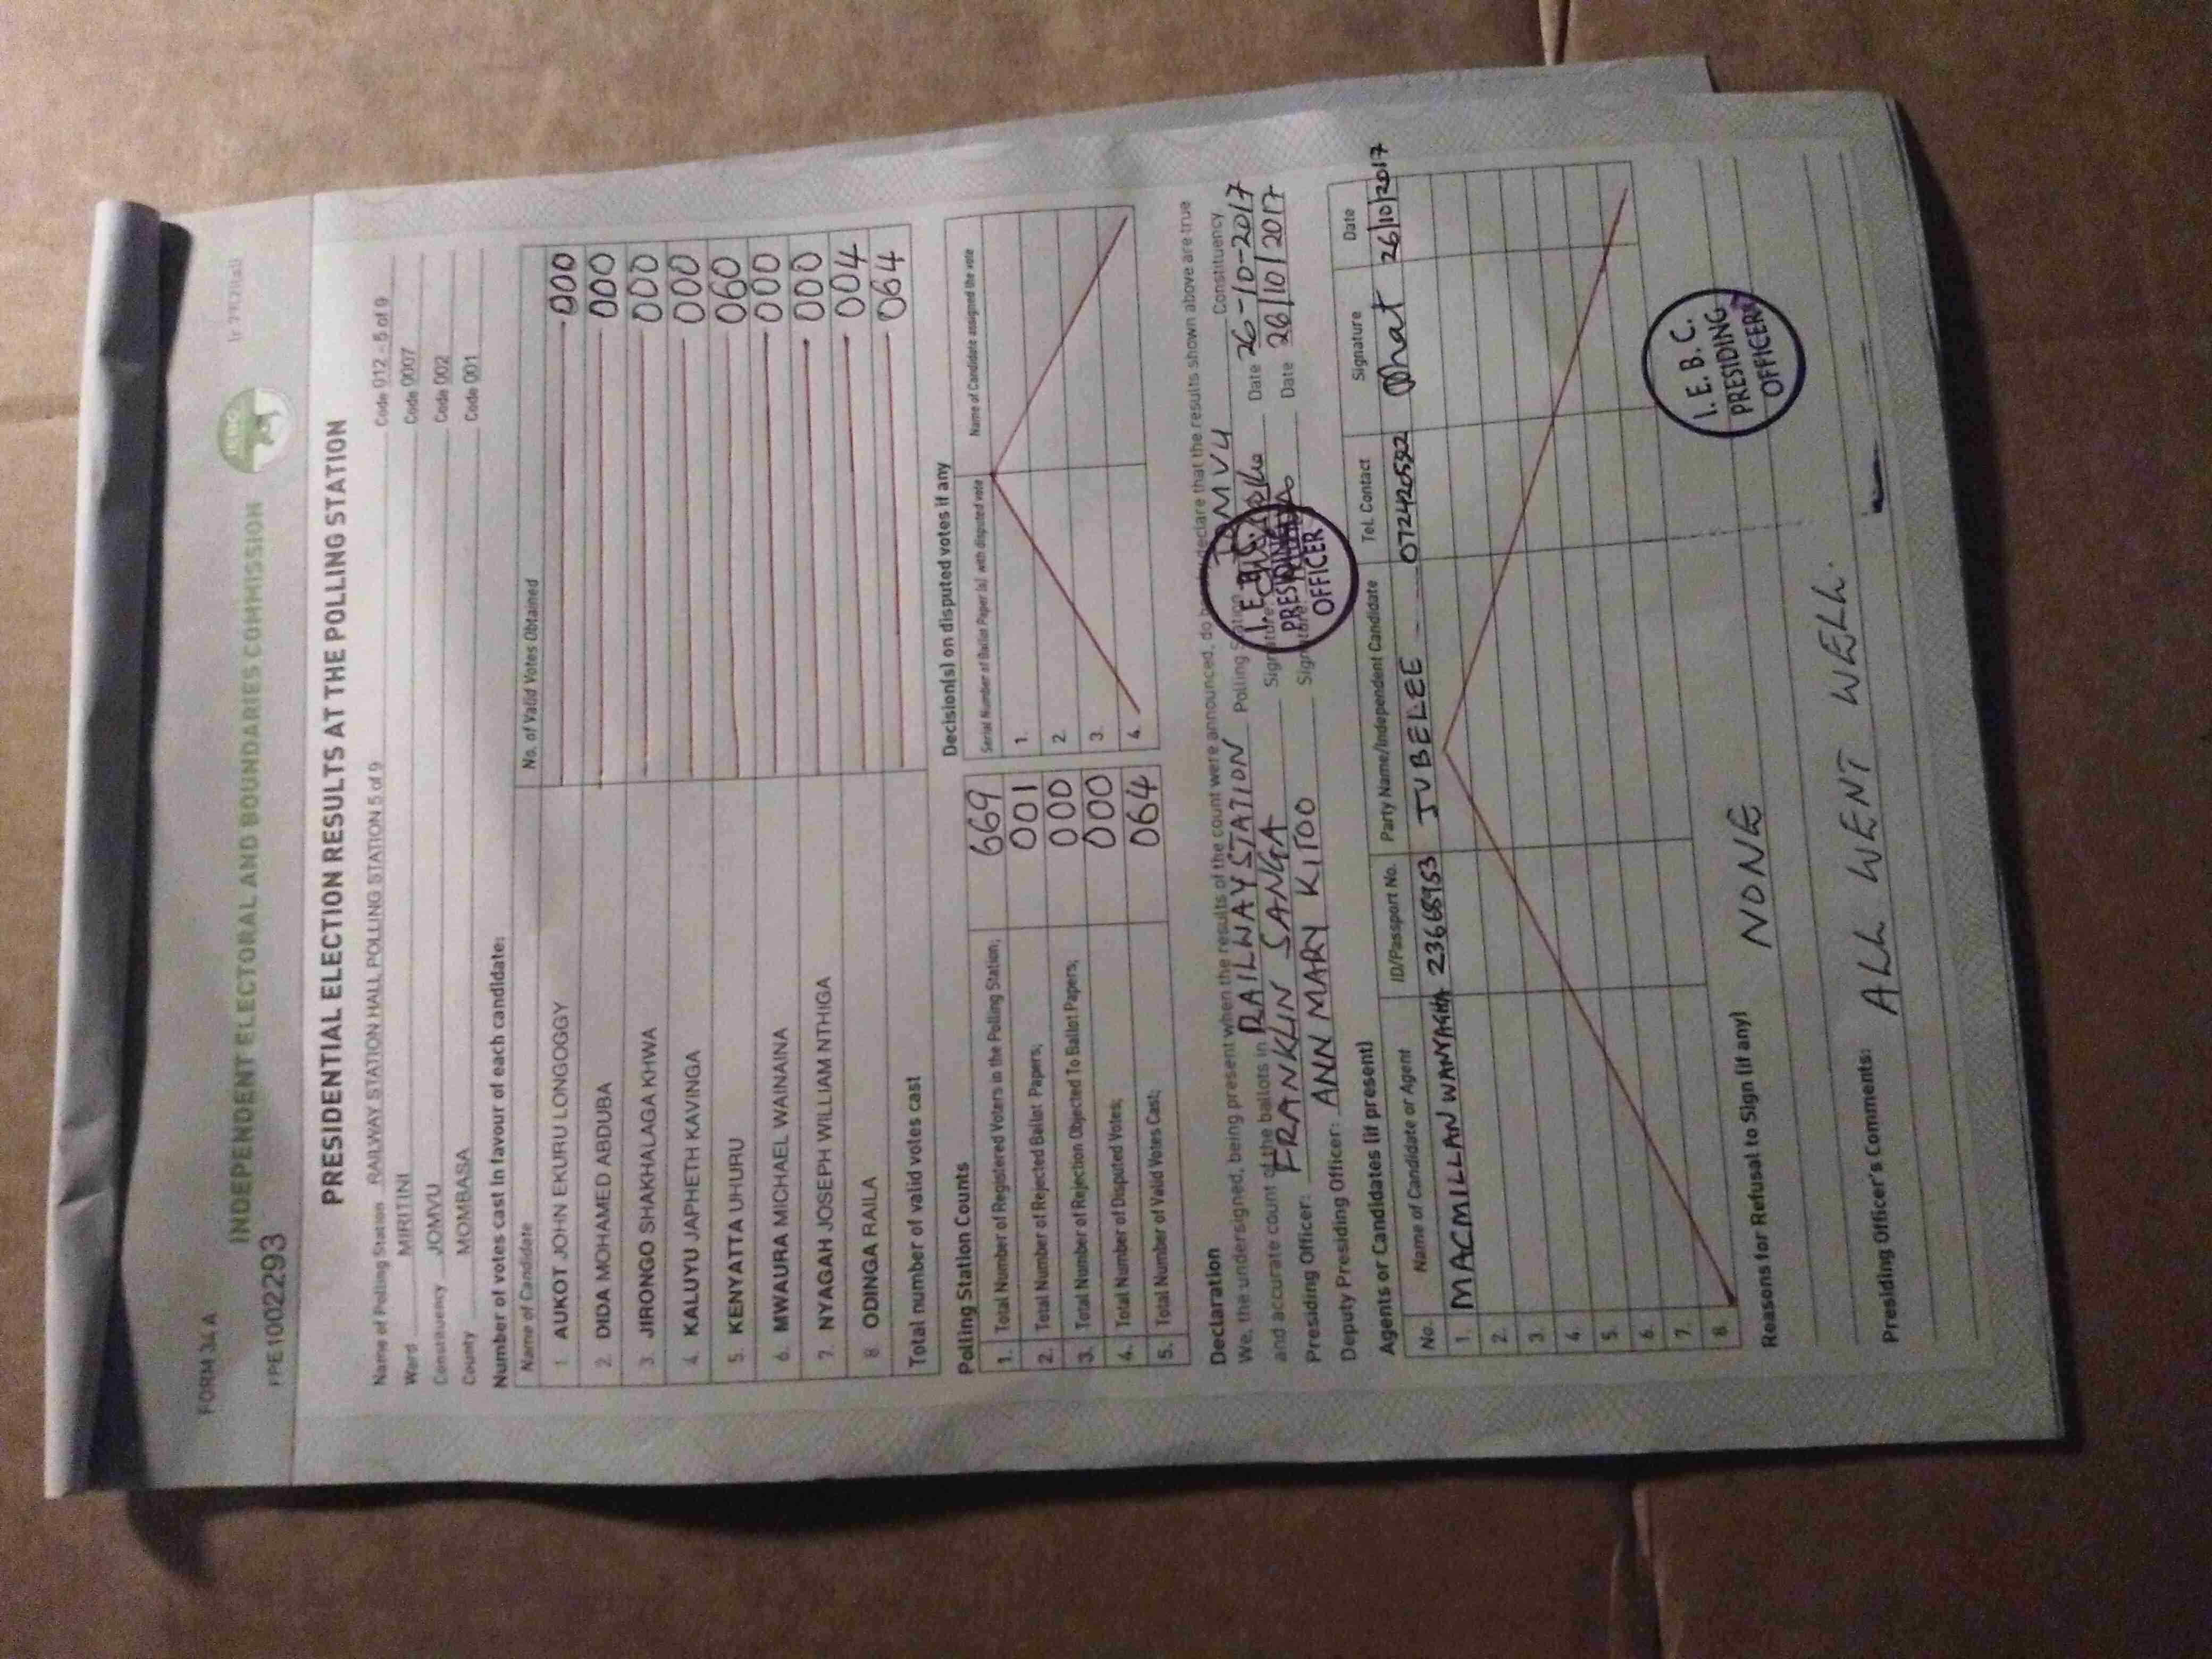 FORM 34A
INDEPENDENT ELECTORAL AND BOUNDARIES COMMISSION
IEBC
PRESIDENTIAL ELECTION RESULTS AT THE POLLING STATION
Name of Polling Station RAILWAY STATION HALL POLLING STATION 5 of 9 Code 012 - 5 of 9
Ward MIRITINI Code 0007
Constituency JOMVU Code 002
County MOMBASA Code 001
Number of votes cast in favour of each candidate:
Name of Candidate No. of Valid Votes Obtained
1. AUKOT JOHN EKURU LONGOGGY 000
2. DIDA MOHAMED ABDUBA 000
3. JIRONGO SHAKHALAGA KHWA 000
4. KALUYU JAPHETH KAVINGA 000
5. KENYATTA UHURU 060
6. MWAURA MICHAEL WAINAINA 000
7. NYAGAH JOSEPH WILLIAM NTHIGA 000
8. ODINGA RAILA 004
Total number of valid votes cast 064
Polling Station Counts
1. Total Number of Registered Voters in the Polling Station; 669
2. Total Number of Rejected Ballot Papers; 001
3. Total Number of Rejection Objected To Ballot Papers; 000
4. Total Number of Disputed Votes; 000
5. Total Number of Valid Votes Cast; 064
Decision(s) on disputed votes if any
Serial Number of Ballot Paper (s) with disputed vote Name of Candidate assigned the vote
1.
2.
3.
4.
Declaration
We, the undersigned, being present when the results of the count were announced, do hereby declare that the results shown above are true
and accurate count of the ballots in RAILWAY STATION Polling Station JOMVU Constituency
Presiding Officer: FRANKLIN SANGA Signature: Date 26-10-2017
Deputy Presiding Officer: ANN MARY KITOO Signature: Date 26/10/2017
I. E. B. C.
PRESIDING
OFFICER
Agents or Candidates (if present)
No. Name of Candidate or Agent ID/Passport No. Party Name/Independent Candidate Tel. Contact Signature Date
1. MACMILLAN 23668953 JUBELEE 0724420592 26/10/2017
2.
3.
4.
5.
6.
7.
8.
I. E. B. C.
PRESIDING
OFFICER
Reasons for Refusal to Sign (if any) NONE
Presiding Officer's Comments: ALL WENT WELL.